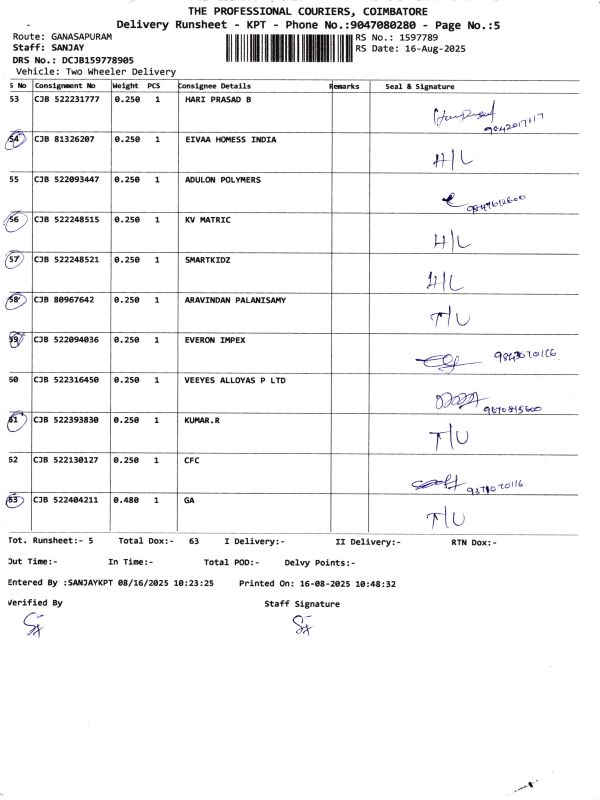 THE PROFESSIONAL COURIERS, COIMBATORE
Delivery Runsheet - KPT - Phone No.:9047080280 - Page No.:5
Route: GANASAPURAM RS No.: 1597789
Staff: SANJAY RS Date: 16-Aug-2025
DRS No.: DCJB159778905
Vehicle: Two Wheeler Delivery
S No Consignment No Weight PCS Consignee Details Remarks Seal & Signature
53 CJB 522231777 0.250 1 HARI PRASAD B
9842017117
54 CJB 81326207 0.250 1 EIVAA HOMESS INDIA
H/L
55 CJB 522093447 0.250 1 ADULON POLYMERS
56 CJB 522248515 0.250 1 KV MATRIC
H/L
57 CJB 522248521 0.250 1 SMARTKIDZ
H/L
58 CJB 80967642 0.250 1 ARAVINDAN PALANISAMY
T/U
59 CJB 522094036 0.250 1 EVERON IMPEX
60 CJB 522316450 0.250 1 VEEYES ALLOYAS P LTD
61 CJB 522393830 0.250 1 KUMAR.R
T/U
62 CJB 522130127 0.250 1 CFC
63 CJB 522404211 0.480 1 GA
T/U
Tot. Runsheet:- 5 Total Dox:- 63 I Delivery:- II Delivery:- RTN Dox:-
Out Time:- In Time:- Total POD:- Delvy Points:-
Entered By :SANJAYKPT 08/16/2025 10:23:25 Printed On: 16-08-2025 10:48:32
Verified By Staff Signature